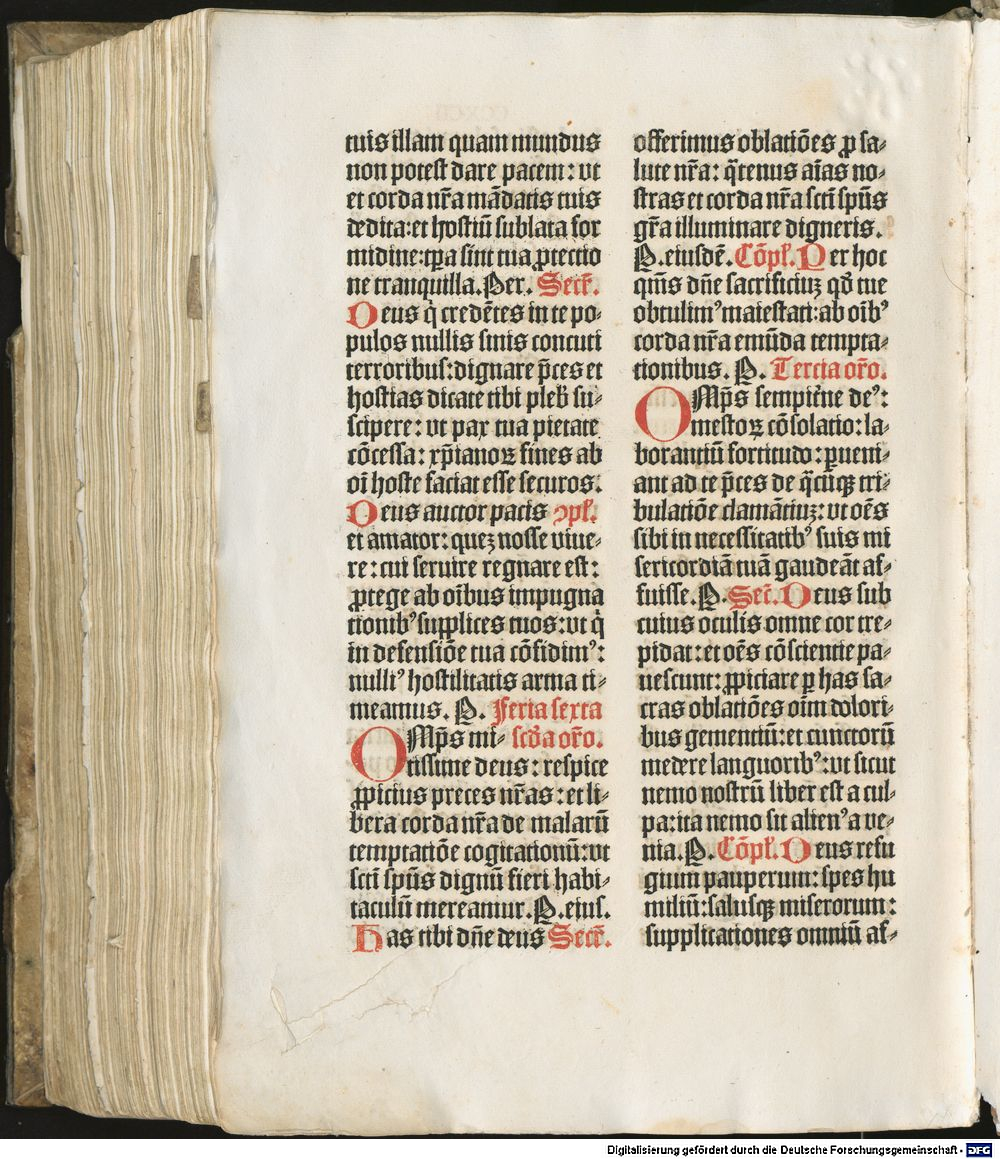 tuis illam quam mundus
non potest dare pacem: vt
et corda nr̃a mãdatis tuis
dedita: et hostiũ sublata for
midine: tꝑa sint tua ꝓtectio
ne tranquilla. Per. Secr̃.
Deus q̇ credẽtes in te po⸗
pulos nullis sinis concuti
terroribus: dignare p̃ces et
hostias dicate tibi pleb̃ su⸗
scipere: vt pax tua pietate
cõcessa: xp̃ianoꝝ fines ab
oĩ hoste faciat esse securos.
Deus auctor pacis ꝯpl̃.
et amator: queʒ nosse viue⸗
re: cui seruire regnare est:
ꝓtege ab oĩbus impugna
tionibꝰ supplices tuos: vt q̇
in defensiõe tua cõfidimꝰ:
nulliꝰ hostilitatis arma ti⸗
meamus. P. Feria sexta
OMp̃s mi⸗ scd̃a or̃o.
tissime deus: respice
ꝓpicius preces nr̃as: et li⸗
bera corda nr̃a de malarũ
temptatiõe cogitationũ: vt
sctĩ spũs dignũ fieri habi⸗
taculũ mereamur. P. eius.
Has tibi dñe deus Secr̃.
offerimus oblatiões ꝓ sa⸗
lute nr̃a: q̃tenus aĩas no⸗
stras et corda nr̃a sctĩ spũs
gr̃a illuminare digneris.
P. eiusdẽ. Cõpl̃. Per hoc
qm̃s dñe sacrificiuʒ qd̓ tue
obtulimꝰ maiestati: ab oĩbꝰ
corda nr̃a emũda tempta⸗
tionibus. P. Tercia or̃o.
OMp̃s sempit̃ne deꝰ:
mestoꝝ cõsolatio: la⸗
borantiũ fortitudo: ꝑueni⸗
ant ad te p̃ces de q̃cũqꝫ tri⸗
bulatiõe clamãtiuʒ: vt oẽs
sibi in necessitatibꝰ suis mi
sericordiã tuã gaudeãt af⸗
fuisse. P. Sec̃. Deus sub
cuius oculis omne cor tre⸗
pidat: et oẽs cõscientie pa⸗
uescunt: ꝓpiciare ꝑ has sa⸗
cras oblatiões oĩm dolori⸗
bus gementiũ: et cunctorũ
medere languoribꝰ: vt sicut
nemo nostrũ liber est a cul⸗
pa: ita nemo sit alienꝰ a ve⸗
nia. P. Cõpl̃. Deus refu
gium pauperum: spes hu
miliũ: salusqꝫ miserorum:
supplicationes omniũ af⸗
Digitalisierung gefördert durch die Deutsche Forschungsgemeinschaft - DFG